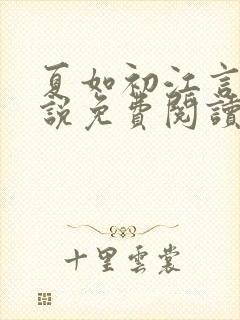 夏如初江言
說免費閱讀
十里雲裳